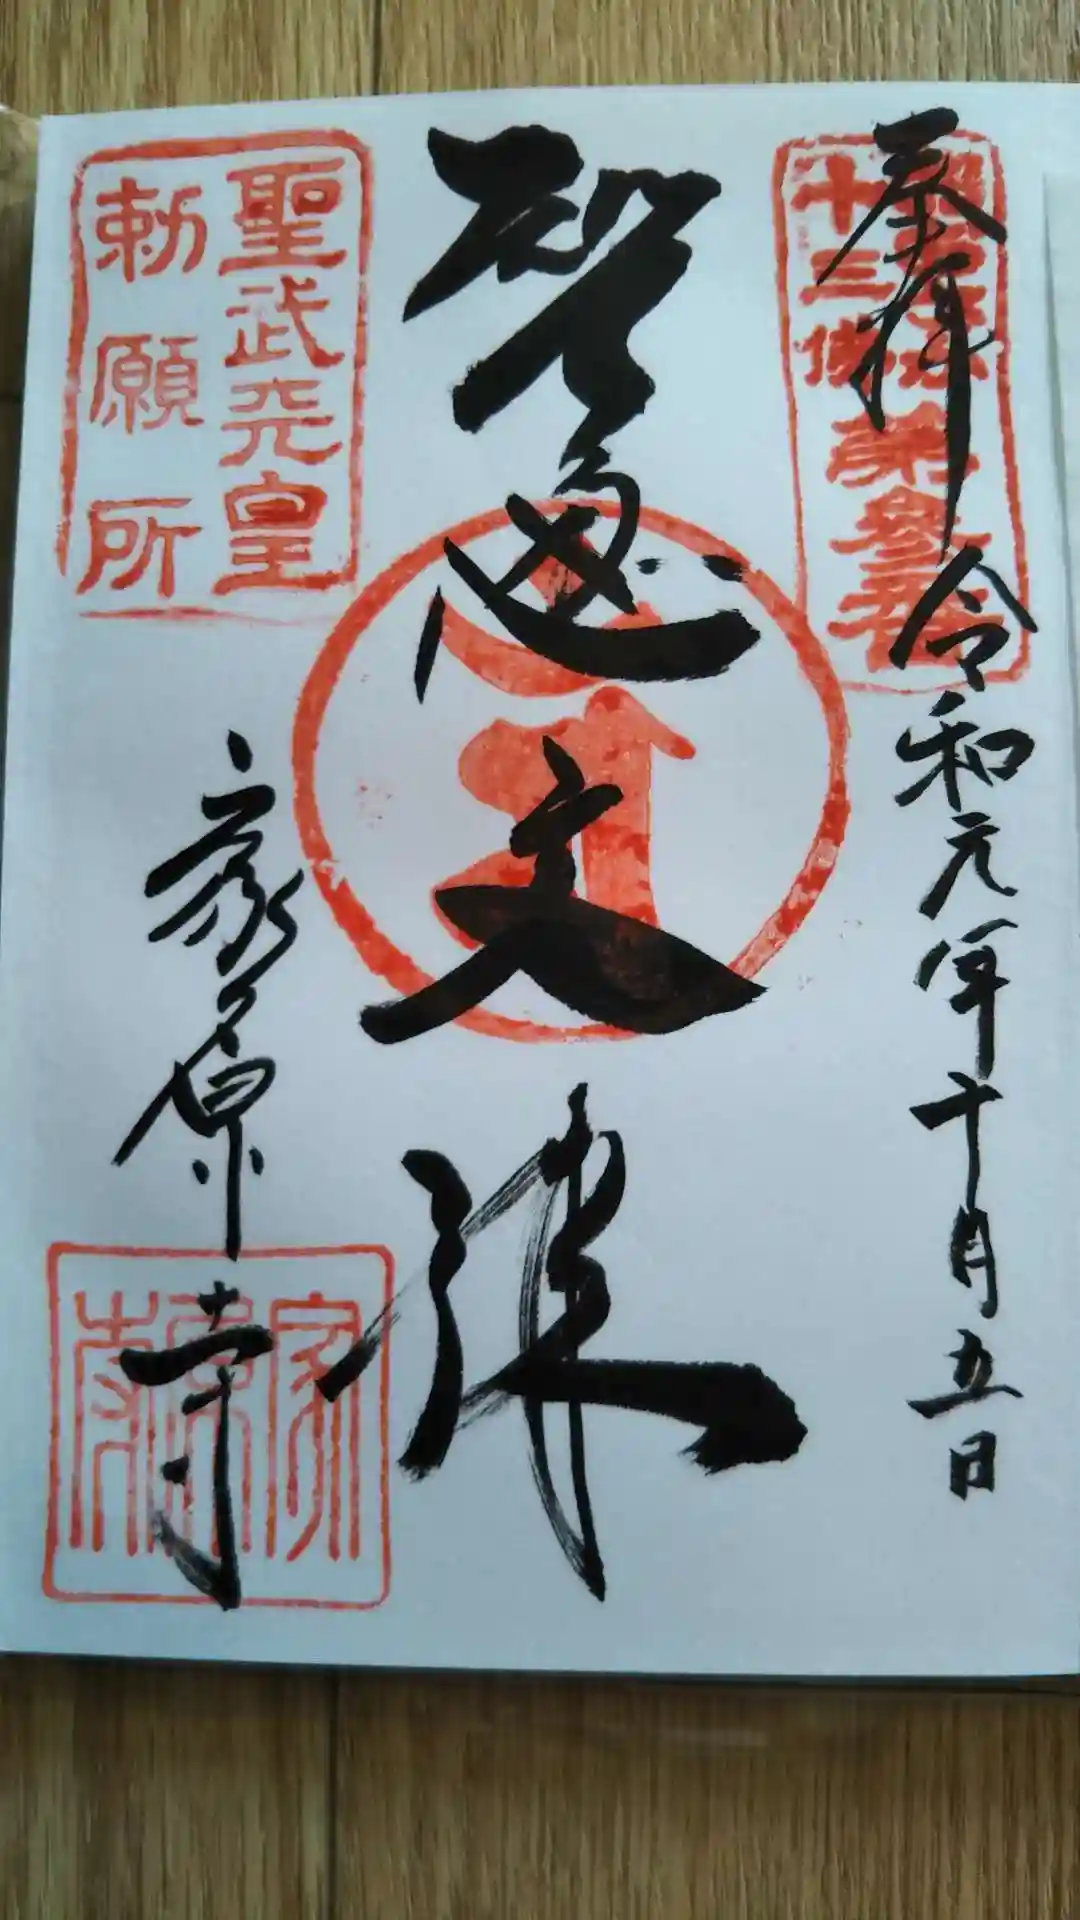 奉拝
令和元年十月五日
十三佛
第参番
智恵文殊
聖武天皇
勅願所
家原寺
家原寺